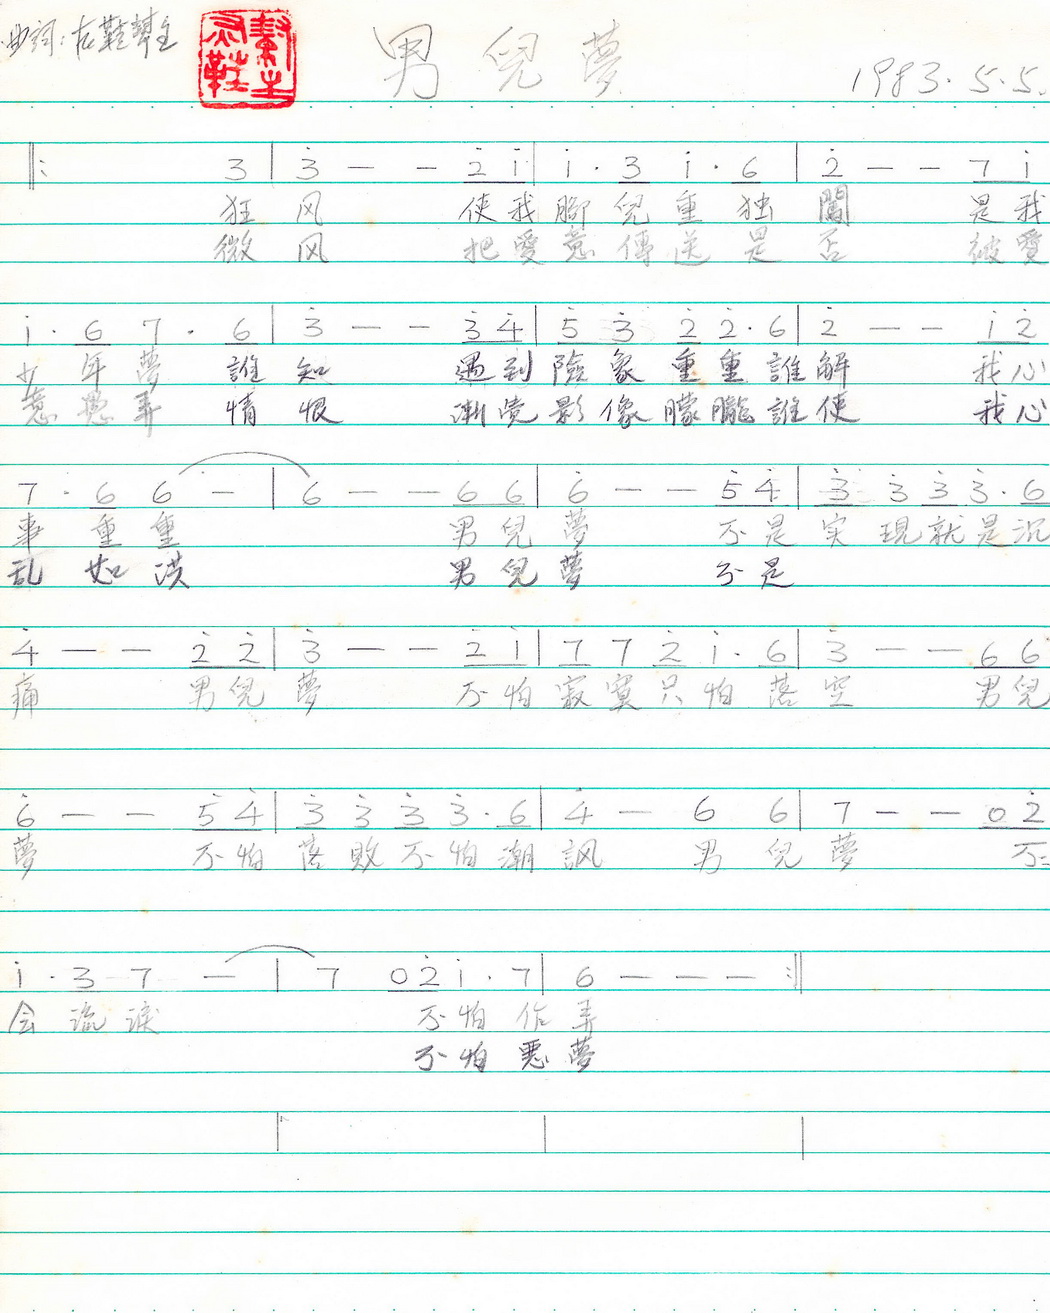 曲詞：左鞋聲主
男兒夢
1983.5.5.
‖: 3 | 3 — — 2 1 | 1 · 3 1 · 6 | 2 — — 7 1
狂 风 使我 腳 兒 重 独 闖 是我
微 风 把愛 意 傳 送 是 否 被愛
1 · 6 7 · 6 | 3 — — 3 4 | 5 3 2 2 · 6 | 2 — — 1 2
少 年 夢 誰 知 遇到 險 象 重 重 誰 解 我心
意 愚 弄 情 恨 漸覺 影 像 朦 朧 誰 使 我心
7 · 6 6 — | 6 — — 6 6 | 6 — — 5 4 | 3 3 3 3 · 6
事 重 重 男兒 夢 不是 实 現 就 是 沉
乱 如 洪 男兒 夢 不是
4 — — 2 2 | 3 — — 2 1 | 7 7 2 1 · 6 | 3 — — 6 6
痛 男兒 夢 不怕 寂 寞 只 怕 落 空 男兒
6 — — 5 4 | 3 3 3 3 · 6 | 4 — 6 6 | 7 — — 0 2
夢 不怕 落 敗 不 怕 潮 諷 男 兒 夢 不
1 · 3 7 — | 7 0 2 1 · 7 | 6 — — — :‖
会 流 淚 不 怕 作 弄
不 怕 惡 夢